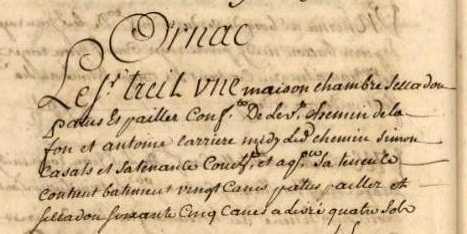 Ornac
Le Sr. treil Une maison chambre
patus Et pailler Conf. De Levt. chemin de la
fon et antoine carriere midy led. chemin simon
Casals et sa tenance Coucht. et aqon. sa
contient batiment vingt Canes patus pailler et
soixante Cinq Canes a livre quatre sols